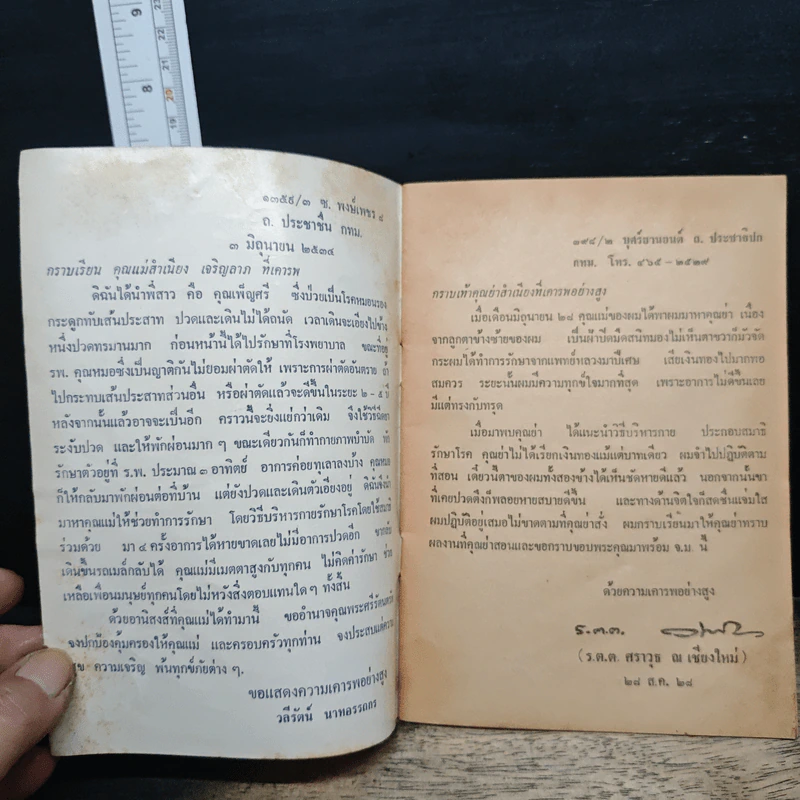 ๑๓๕๙/๓ ซ. พงษ์เพชร ๘
ถ. ประชาชื่น กทม.
๓ มิถุนายน ๒๕๓๔
กราบเรียน คุณแม่สำเนียง เจริญลาภ ที่เคารพ
ดิฉันได้นำพี่สาว คือ คุณเพ็ญศรี ซึ่งป่วยเป็นโรคหมอนรอง
กระดูกทับเส้นประสาท ปวดและเดินไม่ได้ถนัด เวลาเดินจะเอียงไปข้าง
หนึ่งปวดทรมานมาก ก่อนหน้านี้ได้ไปรักษาที่โรงพยาบาล ขณะที่อยู่
รพ. คุณหมอซึ่งเป็นญาติกันไม่ยอมผ่าตัดให้ เพราะการผ่าตัดอันตราย ถ้า
ไปกระทบเส้นประสาทส่วนอื่น หรือผ่าตัดแล้วจะดีขึ้นในระยะ ๒-๕ ปี
หลังจากนั้นแล้วอาจจะเป็นอีก คราวนี้จะยิ่งแย่กว่าเดิม จึงใช้วิธีฉีดยา
ระงับปวด และให้พักผ่อนมาก ๆ ขณะเดียวกันก็ทำกายภาพบำบัด พัก
รักษาตัวอยู่ที่ ร.พ. ประมาณ ๓ อาทิตย์ อาการค่อยทุเลาลงบ้าง คุณหมอ
ก็ให้กลับมาพักผ่อนต่อที่บ้าน แต่ยังปวดและเดินตัวเอียงอยู่ ดิฉันจึงนำ
มาหาคุณแม่ให้ช่วยทำการรักษา โดยวิธีบริหารกายรักษาโรคโดยใช้สมาธิ
ร่วมด้วย มา ๔ ครั้งอาการได้หายขาดเลยไม่มีอาการปวดอีก ขากลับ
เดินขึ้นรถเมล์กลับได้ คุณแม่มีเมตตาสูงกับทุกคน ไม่คิดค่ารักษา ช่วย
เหลือเพื่อนมนุษย์ทุกคนโดยไม่หวังสิ่งตอบแทนใด ๆ ทั้งสิ้น
ด้วยอานิสงส์ที่คุณแม่ได้ทำมานี้ ขออำนาจคุณพระศรีรัตนตรัย
จงปกป้องคุ้มครองให้คุณแม่ และครอบครัวทุกท่าน จงประสบแต่ความ
สุข ความเจริญ พ้นทุกข์ภัยต่าง ๆ.
ขอแสดงความเคารพอย่างสูง
วลีรัตน์ นาทอรรถกร
๓๙๘/๒ บุศร์ยานอนต์ ถ. ประชาธิปก
กทม. โทร. ๔๖๕-๒๕๒๙
กราบเท้าคุณย่าสำเนียงที่เคารพอย่างสูง
เมื่อเดือนมิถุนายน ๒๘ คุณแม่ของผมได้พาผมมาหาคุณย่า เนื่อง
จากลูกตาข้างซ้ายของผม เป็นฝ้าปิดมืดสนิทมองไม่เห็นตาขวาก็มัวจัด
กระผมได้ทำการรักษาจากแพทย์หลวงมาปีเศษ เสียเงินทองไปมากพอ
สมควร ระยะนั้นผมมีความทุกข์ใจมากที่สุด เพราะอาการไม่ดีขึ้นเลย
มีแต่ทรงกับทรุด
เมื่อมาพบคุณย่า ได้แนะนำวิธีบริหารกาย ประกอบสมาธิ
รักษาโรค คุณย่าไม่ได้เรียกเงินทองแม้แต่บาทเดียว ผมจำไปปฏิบัติตาม
ที่สอน เดี๋ยวนี้ตาของผมทั้งสองข้างได้เห็นชัดหายดีแล้ว นอกจากนั้นขา
ที่เคยปวดตึงก็พลอยหายสบายดีขึ้น และทางด้านจิตใจก็สดชื่นแจ่มใส
ผมปฏิบัติอยู่เสมอไม่ขาดตามที่คุณย่าสั่ง ผมกราบเรียนมาให้คุณย่าทราบ
ผลงานที่คุณย่าสอนและขอกราบขอบพระคุณมาพร้อม จ.ม. นี้
ด้วยความเคารพอย่างสูง
ร.ต.ต.
(ร.ต.ต. ศราวุธ ณ เชียงใหม่)
๒๘ ส.ค. ๒๘
9
8
23
22
21
20
19